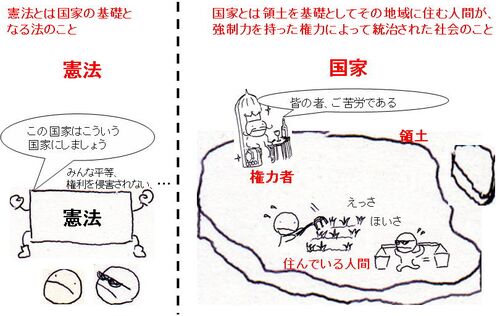 憲法とは国家の基礎と
なる法のこと
憲法
この国家はこういう
国家にしましょう
みんな平等、
権利を侵害されない、…
憲法
国家とは領土を基礎としてその地域に住む人間が、
強制力を持った権力によって統治された社会のこと
国家
皆の者、ご苦労である
領土
権力者
えっさ
ほいさ
住んでいる人間